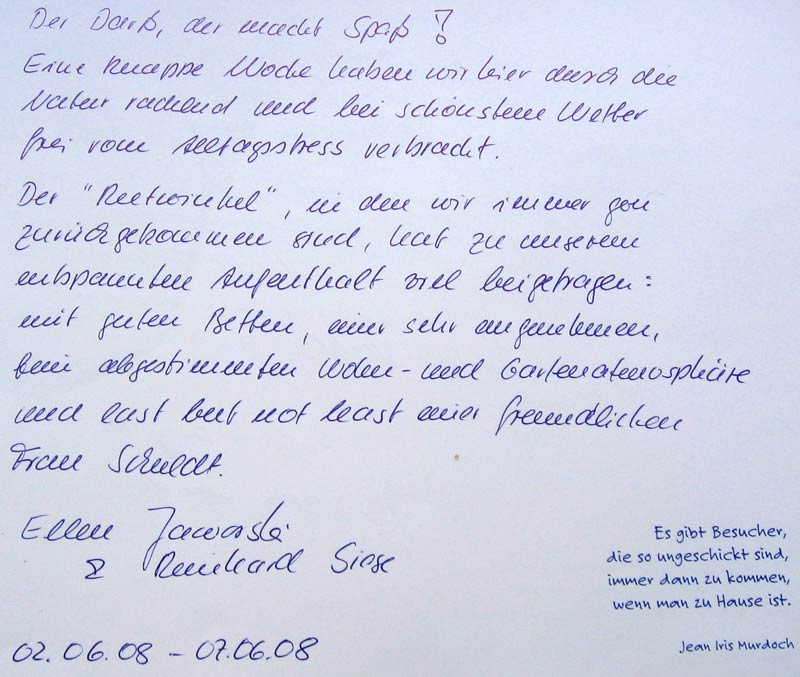 Der Darß, der macht Spaß !
Eine knappe Woche haben wir hier durch die
Natur radelnd und bei schönstem Wetter
frei vom Alltagsstress verbracht.
Der "Reetwinkel", in den wir immer gern
zurückgekommen sind, hat zu unserem
entspannten Aufenthalt viel beigetragen:
mit guten Betten, einer sehr angenehmen,
fein abgestimmten Wohn- und Gartenatmosphäre
und last but not least einer freundlichen
Frau
Ellen Jaworski
& Reinhard
02.06.08 - 07.06.08
Es gibt Besucher,
die so ungeschickt sind,
immer dann zu kommen,
wenn man zu Hause ist.
Jean Iris Murdoch